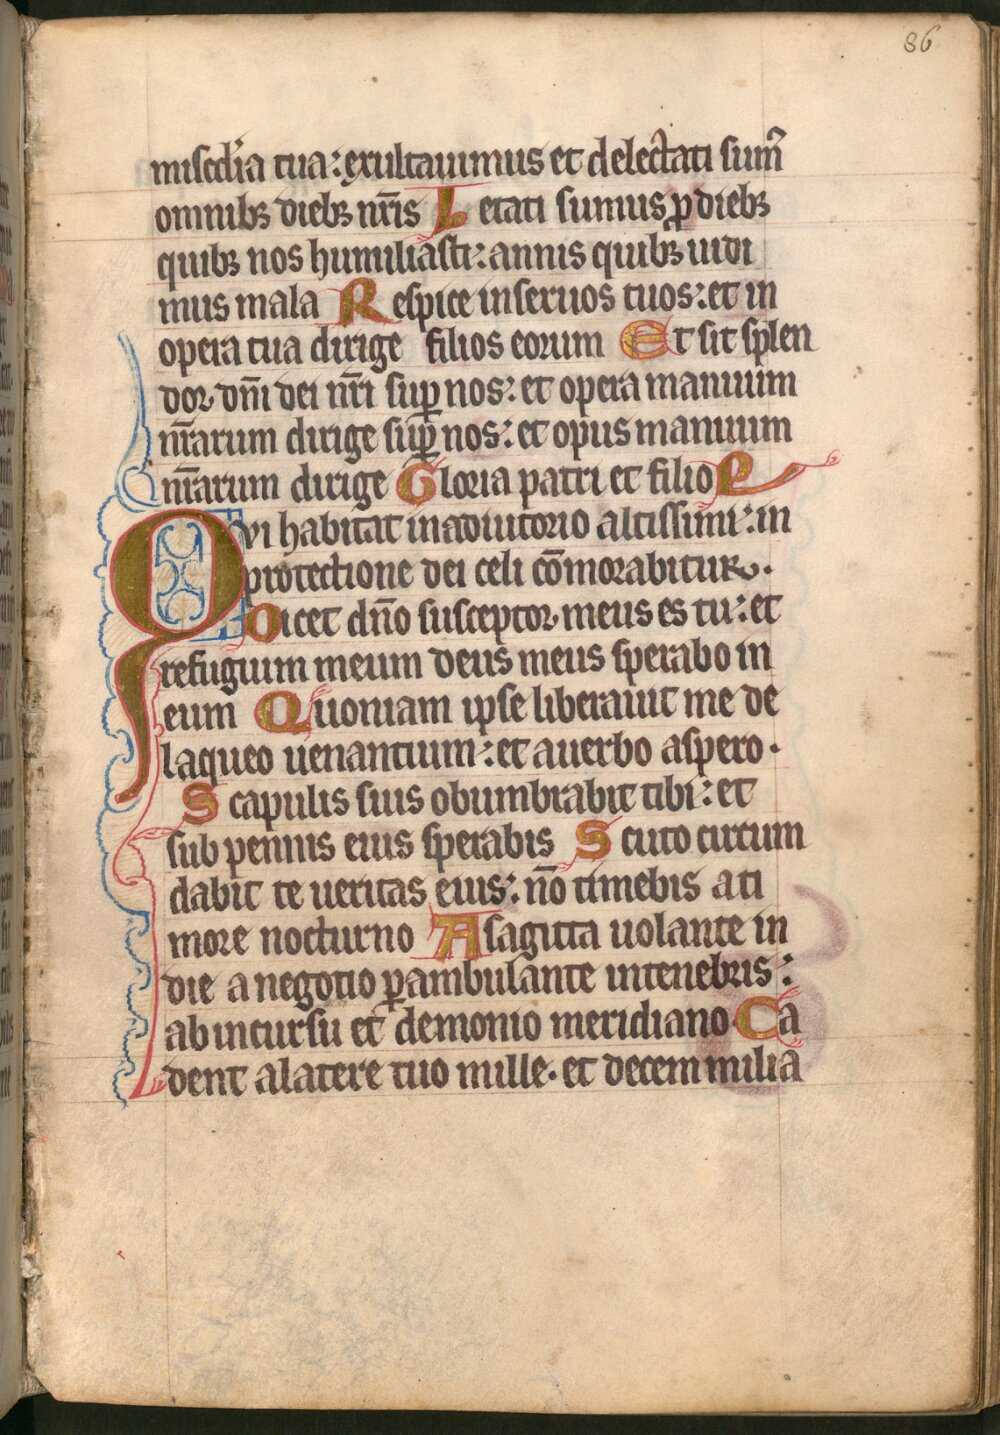 86
misc̄dia tua: exultauimus et delectati sum᷒
omnibꝫ diebꝫ nr̄is Letati sumus ꝓ diebꝫ
quibꝫ nos humiliasti: annis quibꝫ uidi
mus mala Respice in seruos tuos: et in
opera tua dirige filios eorum Et sit splen
dor dn̄i dei nr̄i suꝑ nos: et opera manuum
nr̄arum dirige suꝑ nos: et opus manuum
nr̄arum dirige Gloria patri et filio
Qvi habitat in adiutorio altissimi: in
protectione dei celi cōmorabitur.
Dicet dn̄o susceptor meus es tu: et
refugium meum deus meus sperabo in
eum Quoniam ipse liberauit me de
laqueo uenantium: et a uerbo aspero.
Scapulis suis obumbrabit tibi: et
sub pennis eius sperabis Scuto circum
dabit te ueritas eius: nō timebis a ti
more nocturno A sagitta uolante in
die a negotio ꝑambulante in tenebris:
ab incursu et demonio meridiano Ca
dent a latere tuo mille. et decem milia